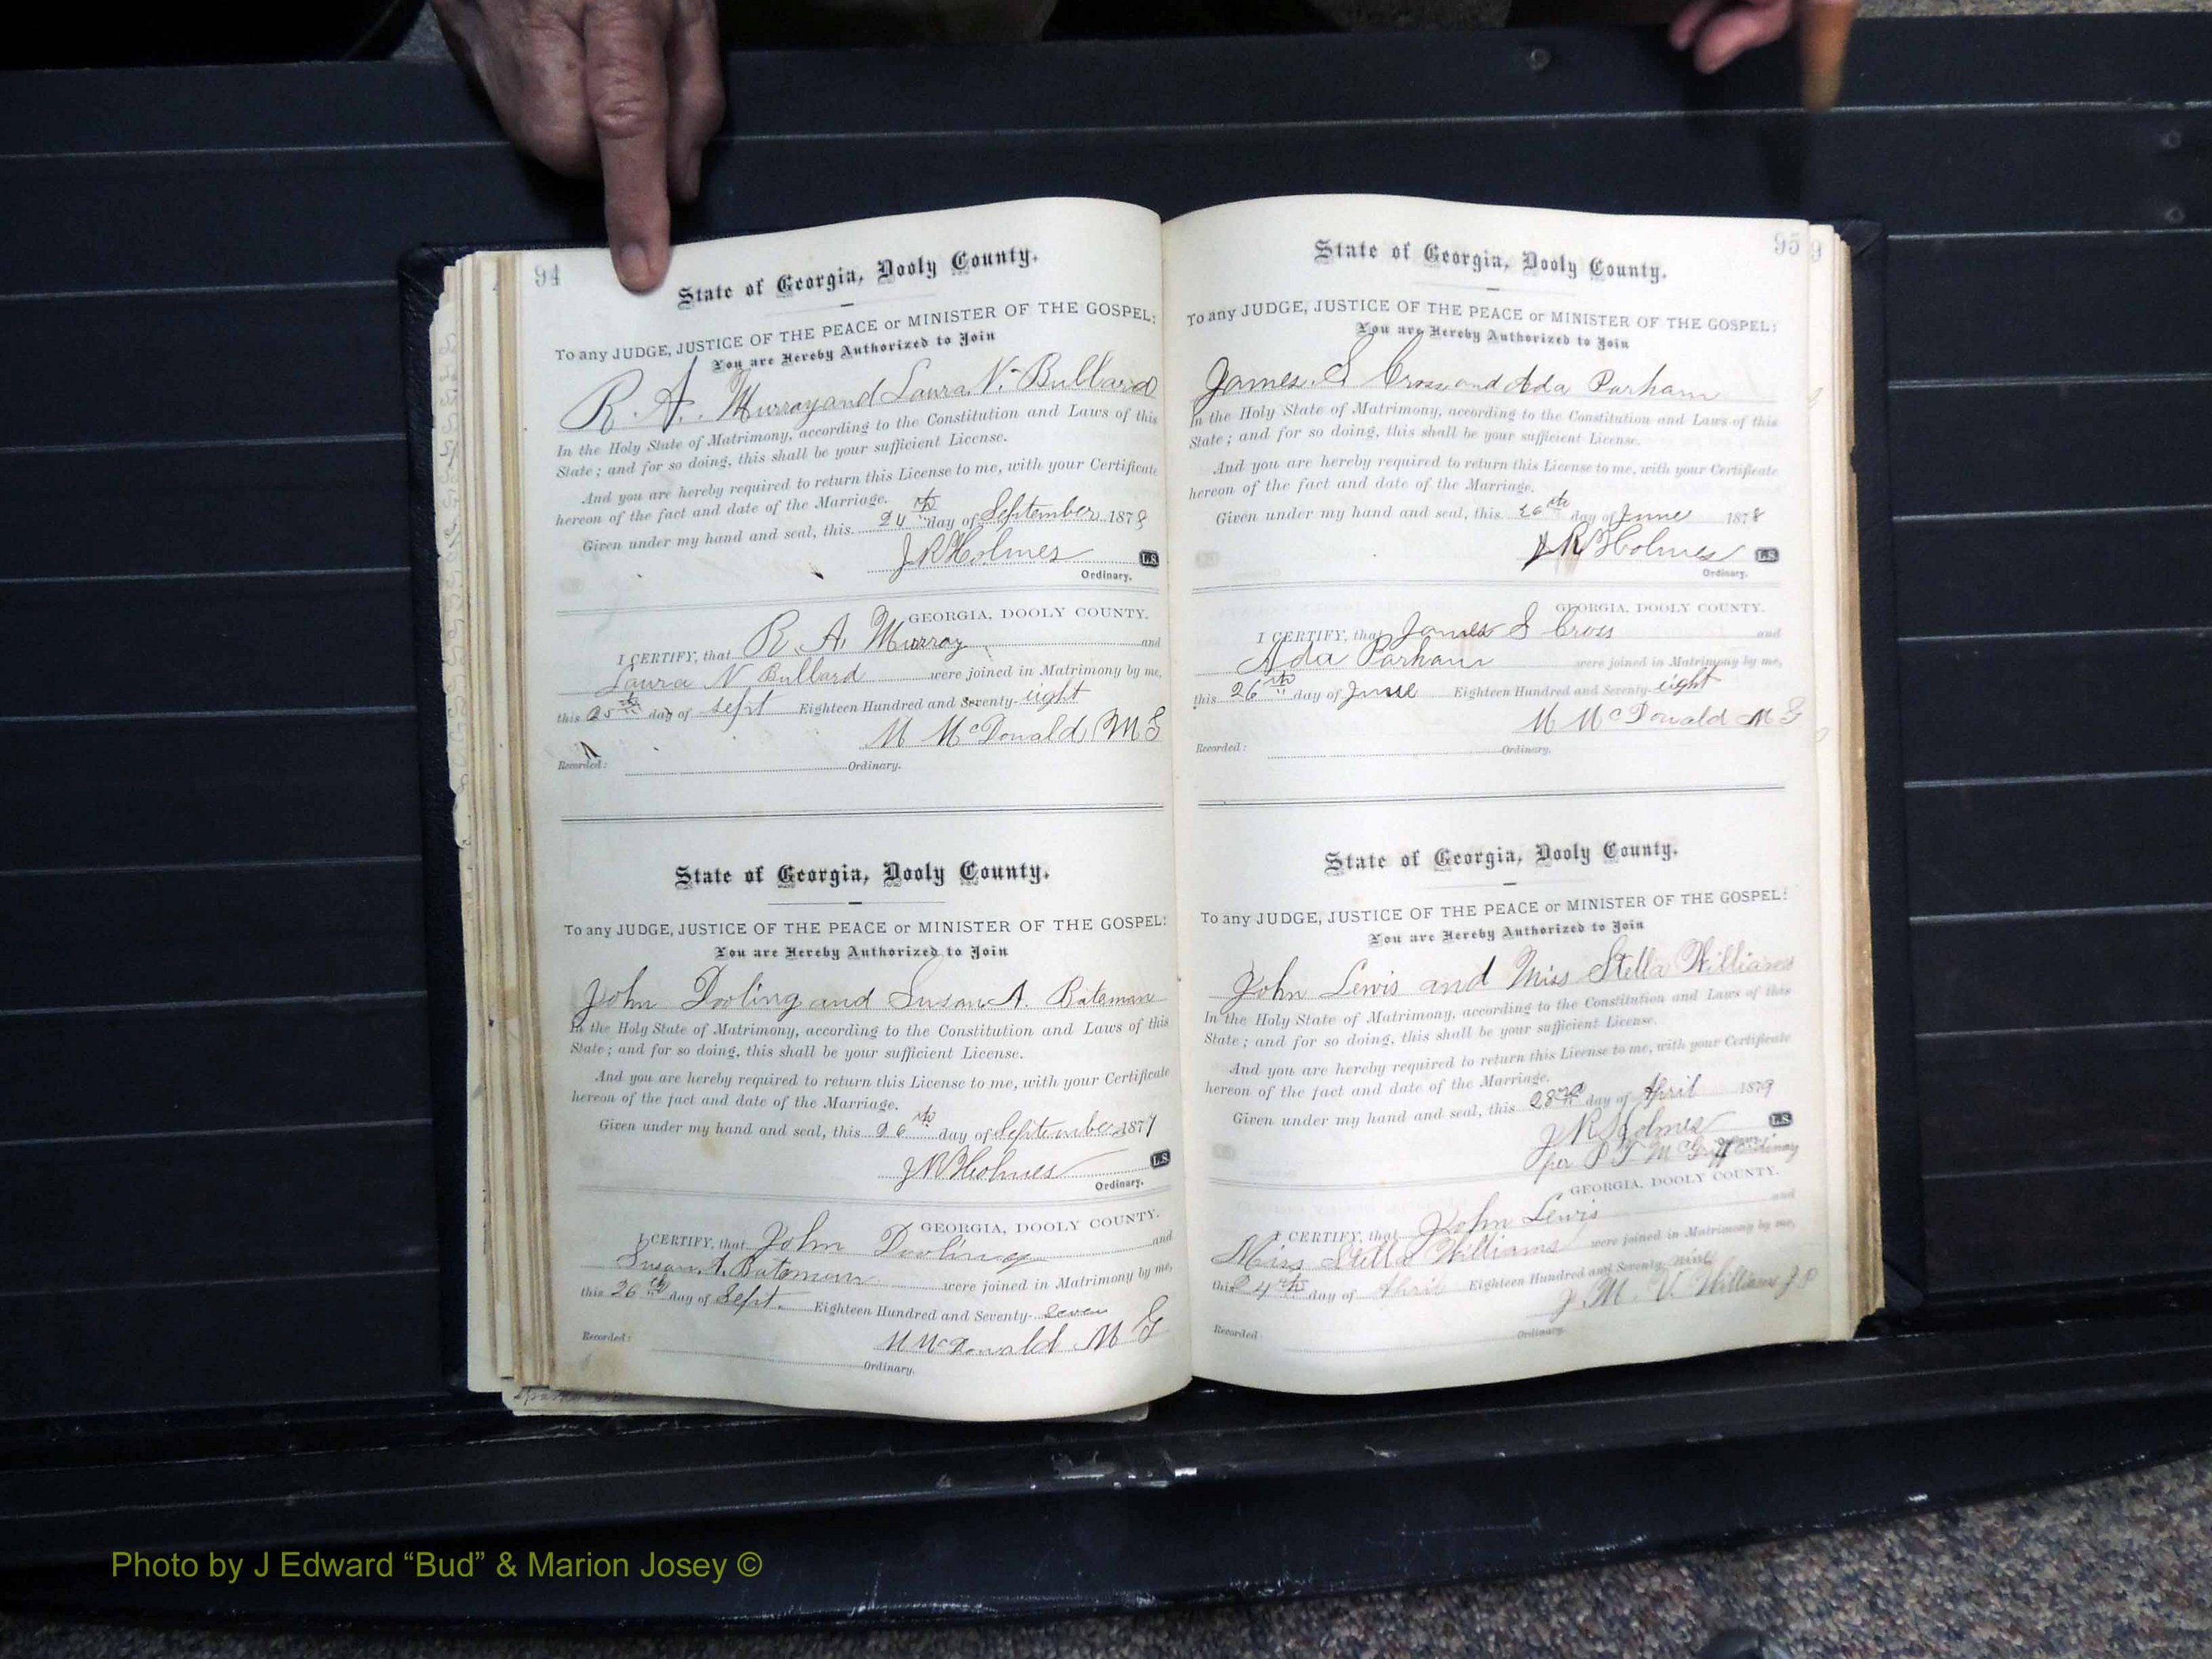 94
State of Georgia, Dooly County.
To any JUDGE, JUSTICE OF THE PEACE or MINISTER OF THE GOSPEL:
You are Hereby Authorized to Join
R. A. Murray and Laura N. Bullard
In the Holy State of Matrimony, according to the Constitution and Laws of this
State; and for so doing, this shall be your sufficient License.
And you are hereby required to return this License to me, with your Certificate
hereon of the fact and date of the Marriage.
Given under my hand and seal, this 24th day of September 1878
J R Holmes L.S.
Ordinary.
GEORGIA, DOOLY COUNTY.
I CERTIFY, that R. A. Murray and
Laura N Bullard were joined in Matrimony by me,
this 25th day of Sept Eighteen Hundred and Seventy-eight
M McDonald M G
Recorded: Ordinary.
State of Georgia, Dooly County.
To any JUDGE, JUSTICE OF THE PEACE or MINISTER OF THE GOSPEL:
You are Hereby Authorized to Join
John Dooling and Susan A. Bateman
In the Holy State of Matrimony, according to the Constitution and Laws of this
State; and for so doing, this shall be your sufficient License.
And you are hereby required to return this License to me, with your Certificate
hereon of the fact and date of the Marriage.
Given under my hand and seal, this 26th day of September 1877
J R Holmes L.S.
Ordinary.
GEORGIA, DOOLY COUNTY.
I CERTIFY, that John Dooling and
Susan A. Bateman were joined in Matrimony by me,
this 26th day of Sept. Eighteen Hundred and Seventy-seven
M McDonald M G
Recorded: Ordinary.
95 9
State of Georgia, Dooly County.
To any JUDGE, JUSTICE OF THE PEACE or MINISTER OF THE GOSPEL:
You are Hereby Authorized to Join
James S Cross and Ada Parham
In the Holy State of Matrimony, according to the Constitution and Laws of this
State; and for so doing, this shall be your sufficient License.
And you are hereby required to return this License to me, with your Certificate
hereon of the fact and date of the Marriage.
Given under my hand and seal, this 26th day of June 1878
J R Holmes L.S.
Ordinary.
GEORGIA, DOOLY COUNTY.
I CERTIFY, that James S Cross and
Ada Parham were joined in Matrimony by me,
this 26th day of June Eighteen Hundred and Seventy-eight
M McDonald M G
Recorded: Ordinary.
State of Georgia, Dooly County.
To any JUDGE, JUSTICE OF THE PEACE or MINISTER OF THE GOSPEL:
You are Hereby Authorized to Join
John Lewis and Miss Stella Williams
In the Holy State of Matrimony, according to the Constitution and Laws of this
State; and for so doing, this shall be your sufficient License.
And you are hereby required to return this License to me, with your Certificate
hereon of the fact and date of the Marriage.
Given under my hand and seal, this day of April 1879
J R Holmes L.S.
per P T McGriff Ordinary
GEORGIA, DOOLY COUNTY.
I CERTIFY, that John Lewis and
Miss Stella Williams were joined in Matrimony by me,
this 24th day of April Eighteen Hundred and Seventy-nine
J. M. V. Williams J P
Recorded: Ordinary.
Photo by J Edward “Bud” & Marion Josey ©